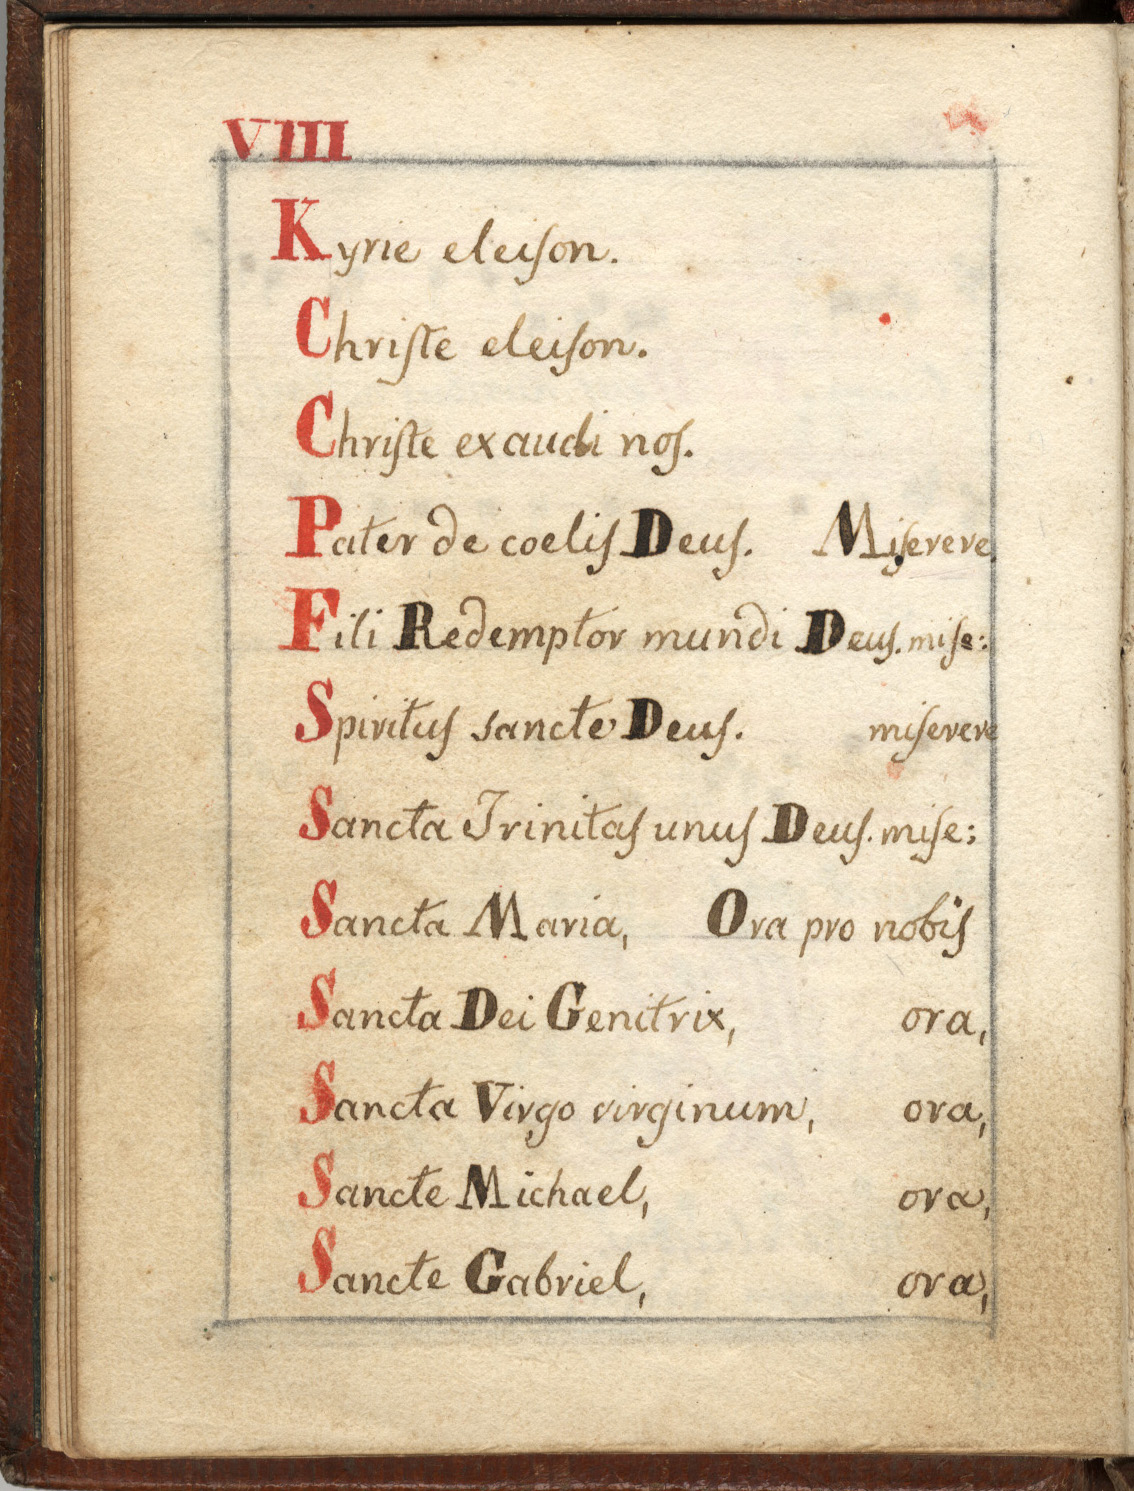 VIII
Kyrie eleiſon.
Chriſte eleiſon.
Chriſte exaudi noſ.
Pater de coeliſ Deuſ. Miſerere.
Fili Redemptor mundi Deuſ. miſe:
Spirituſ sancte Deuſ. miſerere
Sancta Trinitaſ unuſ Deuſ. miſe:
Sancta Maria, Ora pro nobiſ
Sancta Dei Genitrix, ora,
Sancta Virgo virginum, ora,
Sancte Michael, ora,
Sancte Gabriel, ora,